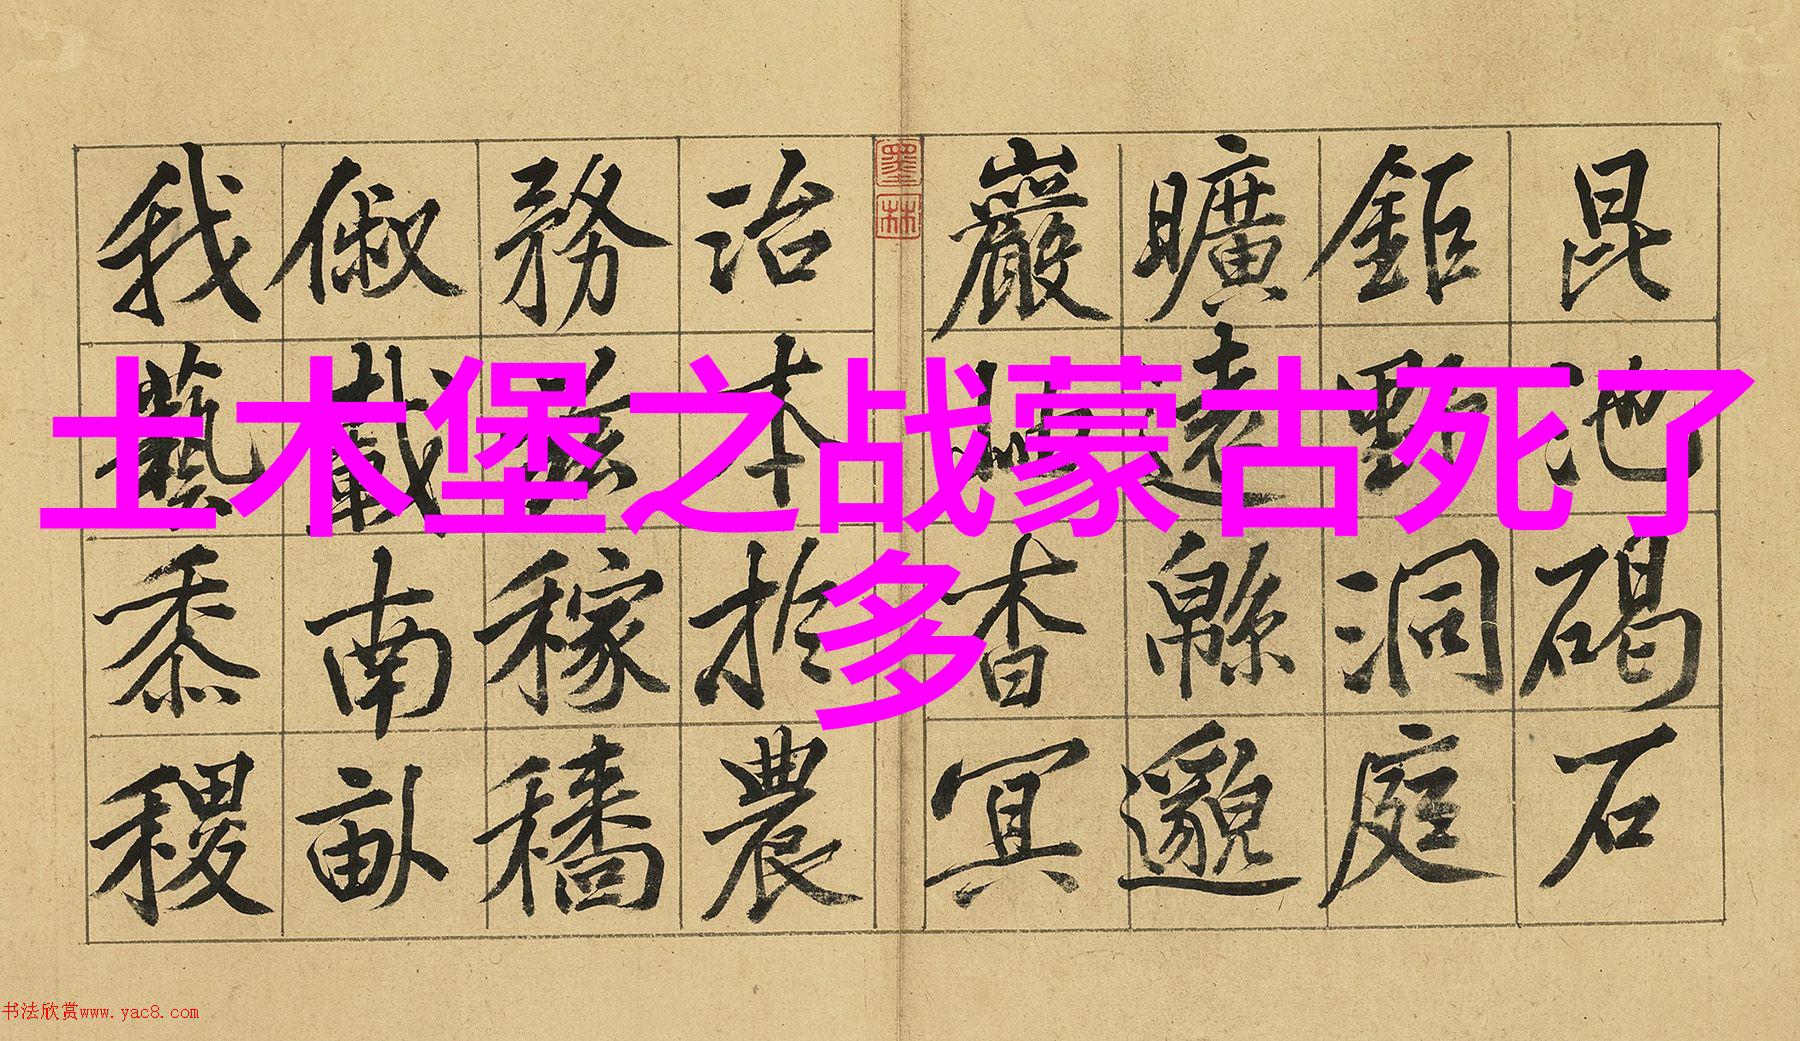 土木堡之战蒙古死了
多
昆池碣石
鉅野洞庭
曠遠緜邈
巖岫杳冥
墨林
治本於農
務茲稼穡
俶載南畝
我藝黍稷
书法欣赏www.yac8.com